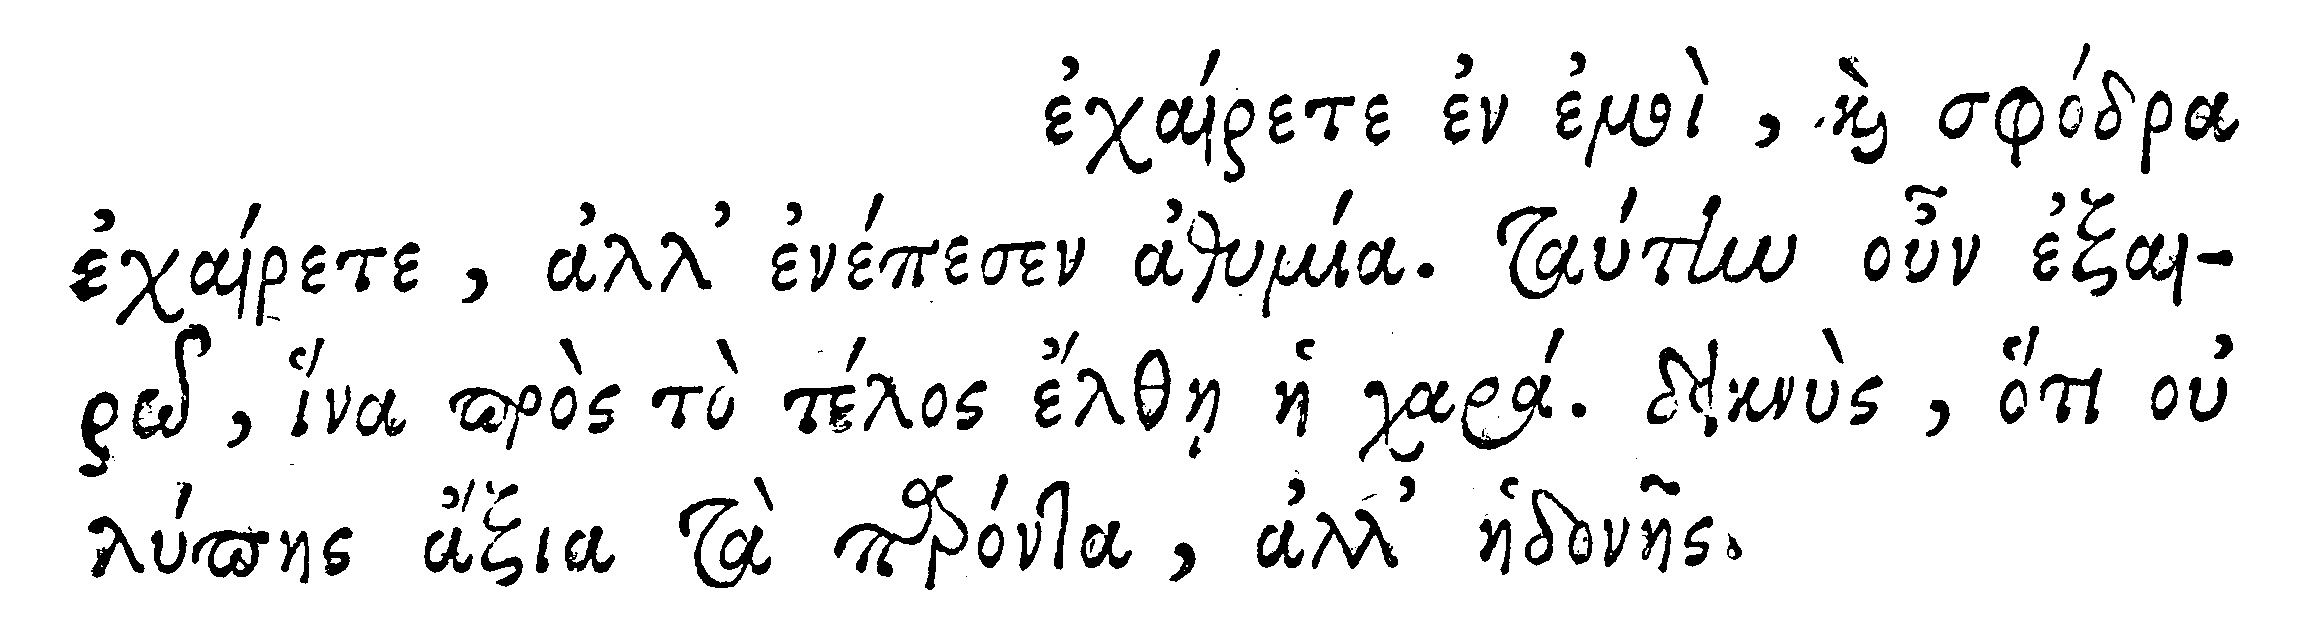 ἐχαίρετε ἐν ἐμοὶ, ϗ̀ σφόδρα
ἐχαίρετε, ἀλλ' ἐνέπεσεν ἀθυμία. Ταύτην οὖν ἐξαι-
ρῶ, ἵνα πρὸς τὸ τέλος ἔλθῃ ἡ χαρά. δεικνὺς, ὅτι οὐ
λύπης ἄξια τὰ παρόντα, ἀλλ' ἡδονῆς.